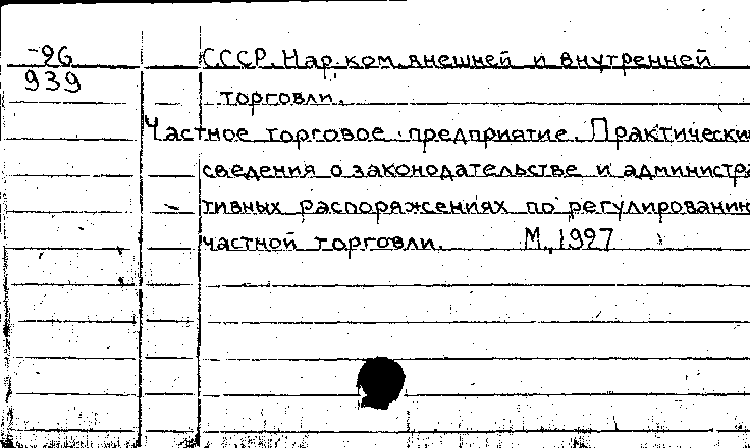 -96
939
СССР. Нар. ком. внешней и внутренней
торговли.
Частное торговое предприятие. Практически
сведения о законодательстве и администра
тивных распоряжениях по регулированию
частной торговли. М., 1927